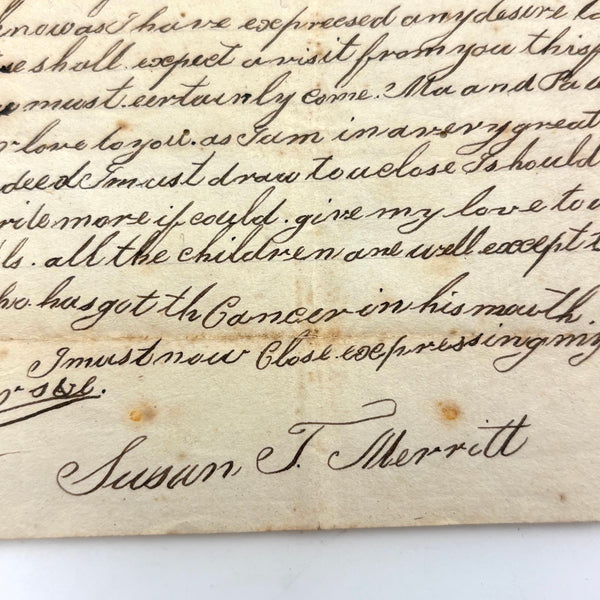 knowas I have expreesed any desire to
we shall expect a visit from you this
must certainly come. Ma and Pa
love to you. as I am in a very great
deed I must draw to a close I should
write more if could. give my love to
all the children are well except
who has got th Cancer in his mouth.
I must now Close expressing my
Susan T. Merritt